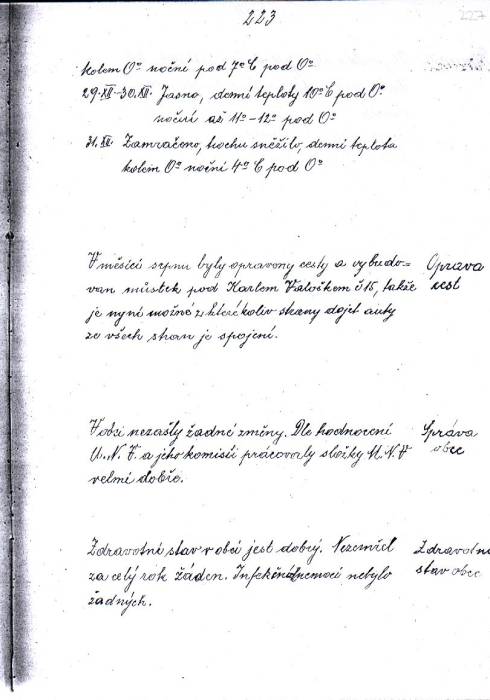 223
227
kolem 0° noční pod 7°C pod 0°
29.XII-30.XII. Jasno, denní teploty 10°C pod 0°
noční až 11°-12° pod 0°
31.XII. Zamračeno, trochu sněžilo, denní teplota
kolem 0° noční 4°C pod 0°
V měsíci srpnu byly opraveny cesty a vybudo=
ván můstek pod Karlem Valoškem č 15, takže
je nyní možné z kterékoliv strany dojet auty
ze všech stran je spojení.
Oprava
cest
V obci nezašly žadné změny. Dle hodnocení
O.N.V. a jeho komisí pracovaly složky M.N.V
velmi dobře.
Správa
obce
Zdravotní stav v obci jest dobrý. Nezemřel
za celý rok žáden. Infekčních nemocí nebylo
žadných.
Zdravotní
stav obce